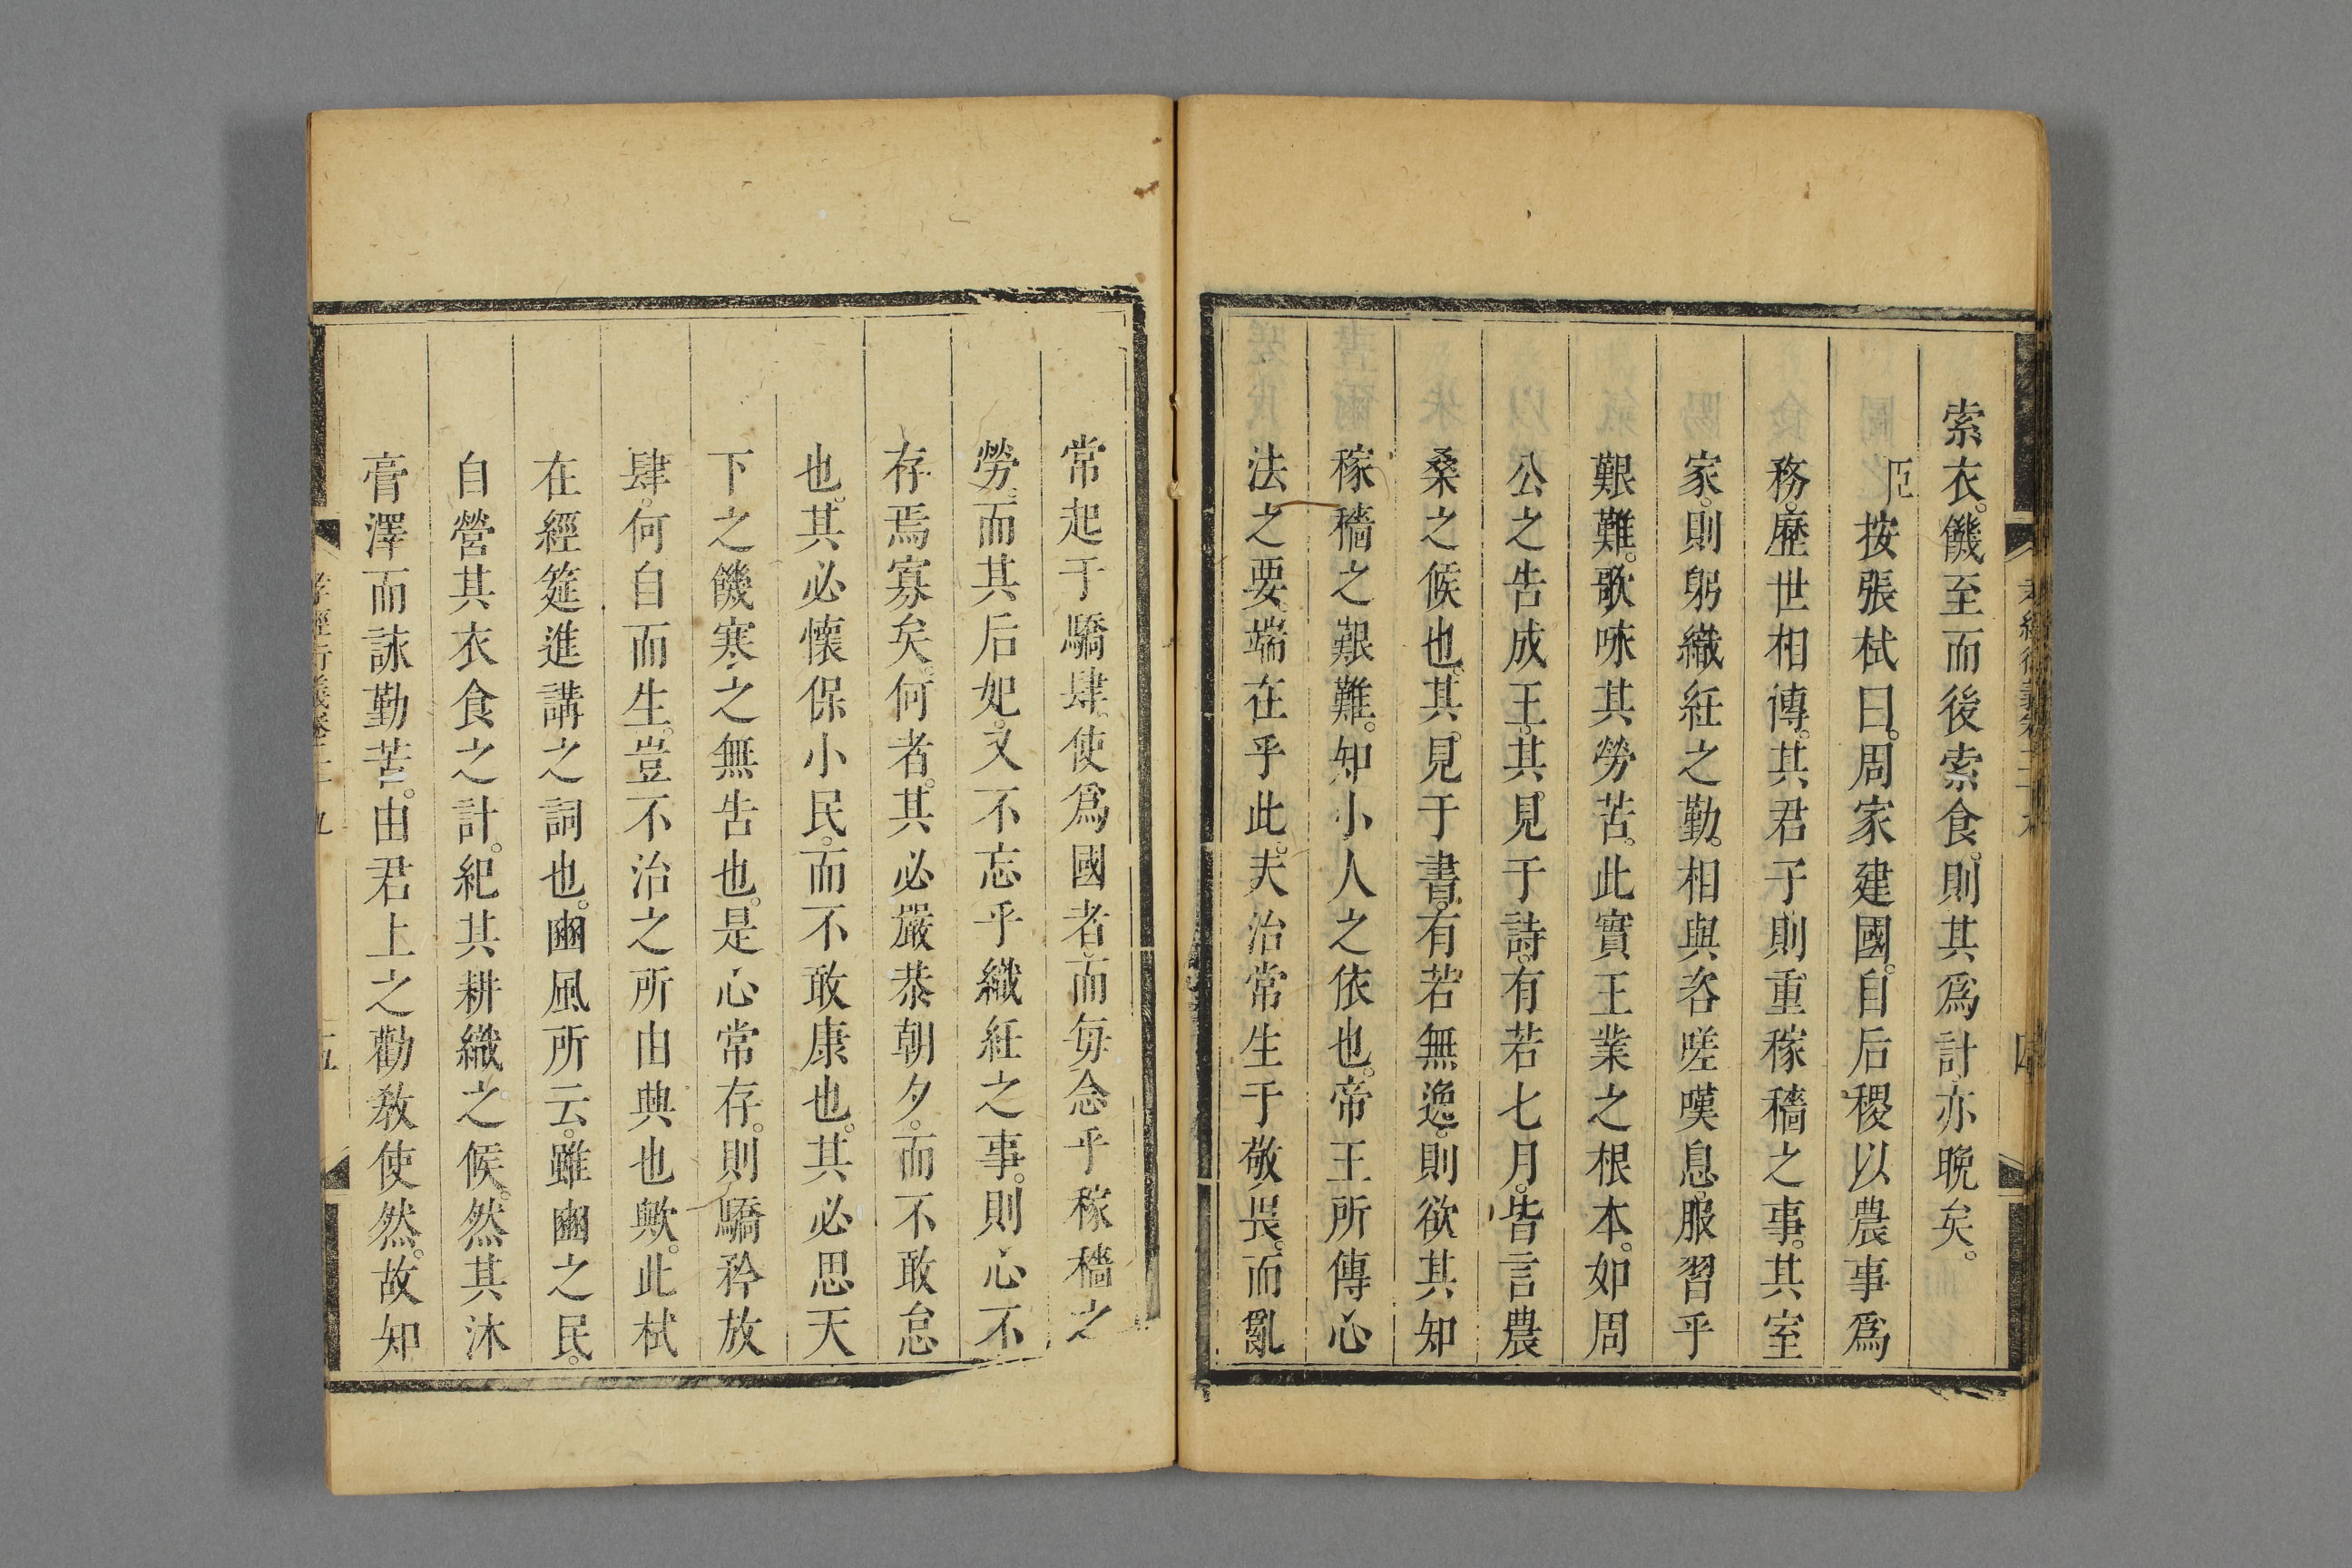 索衣。饑至而後索食。則其爲計亦晚矣。
臣按張栻曰。周家建國。自后稷以農事爲
務。歷世相傳。其君子則重稼穡之事。其室
家。則躬織紝之勤。相與咨嗟嘆息。服習乎
艱難。歌咏其勞苦。此實王業之根本。如周
公之告成王。其見于詩。有若七月。皆言農
桑之候也。其見于書。有若無逸。則欲其知
稼穡之艱難。知小人之依也。帝王所傳心
法之要。端在乎此。夫治常生于敬畏。而亂
常起于驕肆。使爲國者。而每念乎稼穡之
勞。而其后妃。又不忘乎織紝之事。則心不
存焉寡矣。何者。其必嚴恭朝夕。而不敢怠
也。其必懷保小民。而不敢康也。其必思天
下之饑寒之無告也。是心常存。則驕矜放
肆。何自而生。豈不治之所由興也歟。此栻
在經筵進講之詞也。豳風所云。雖豳之民。
自營其衣食之計。紀其耕織之候。然其沐
膏澤而詠勤苦。由君上之勸敎使然。故知